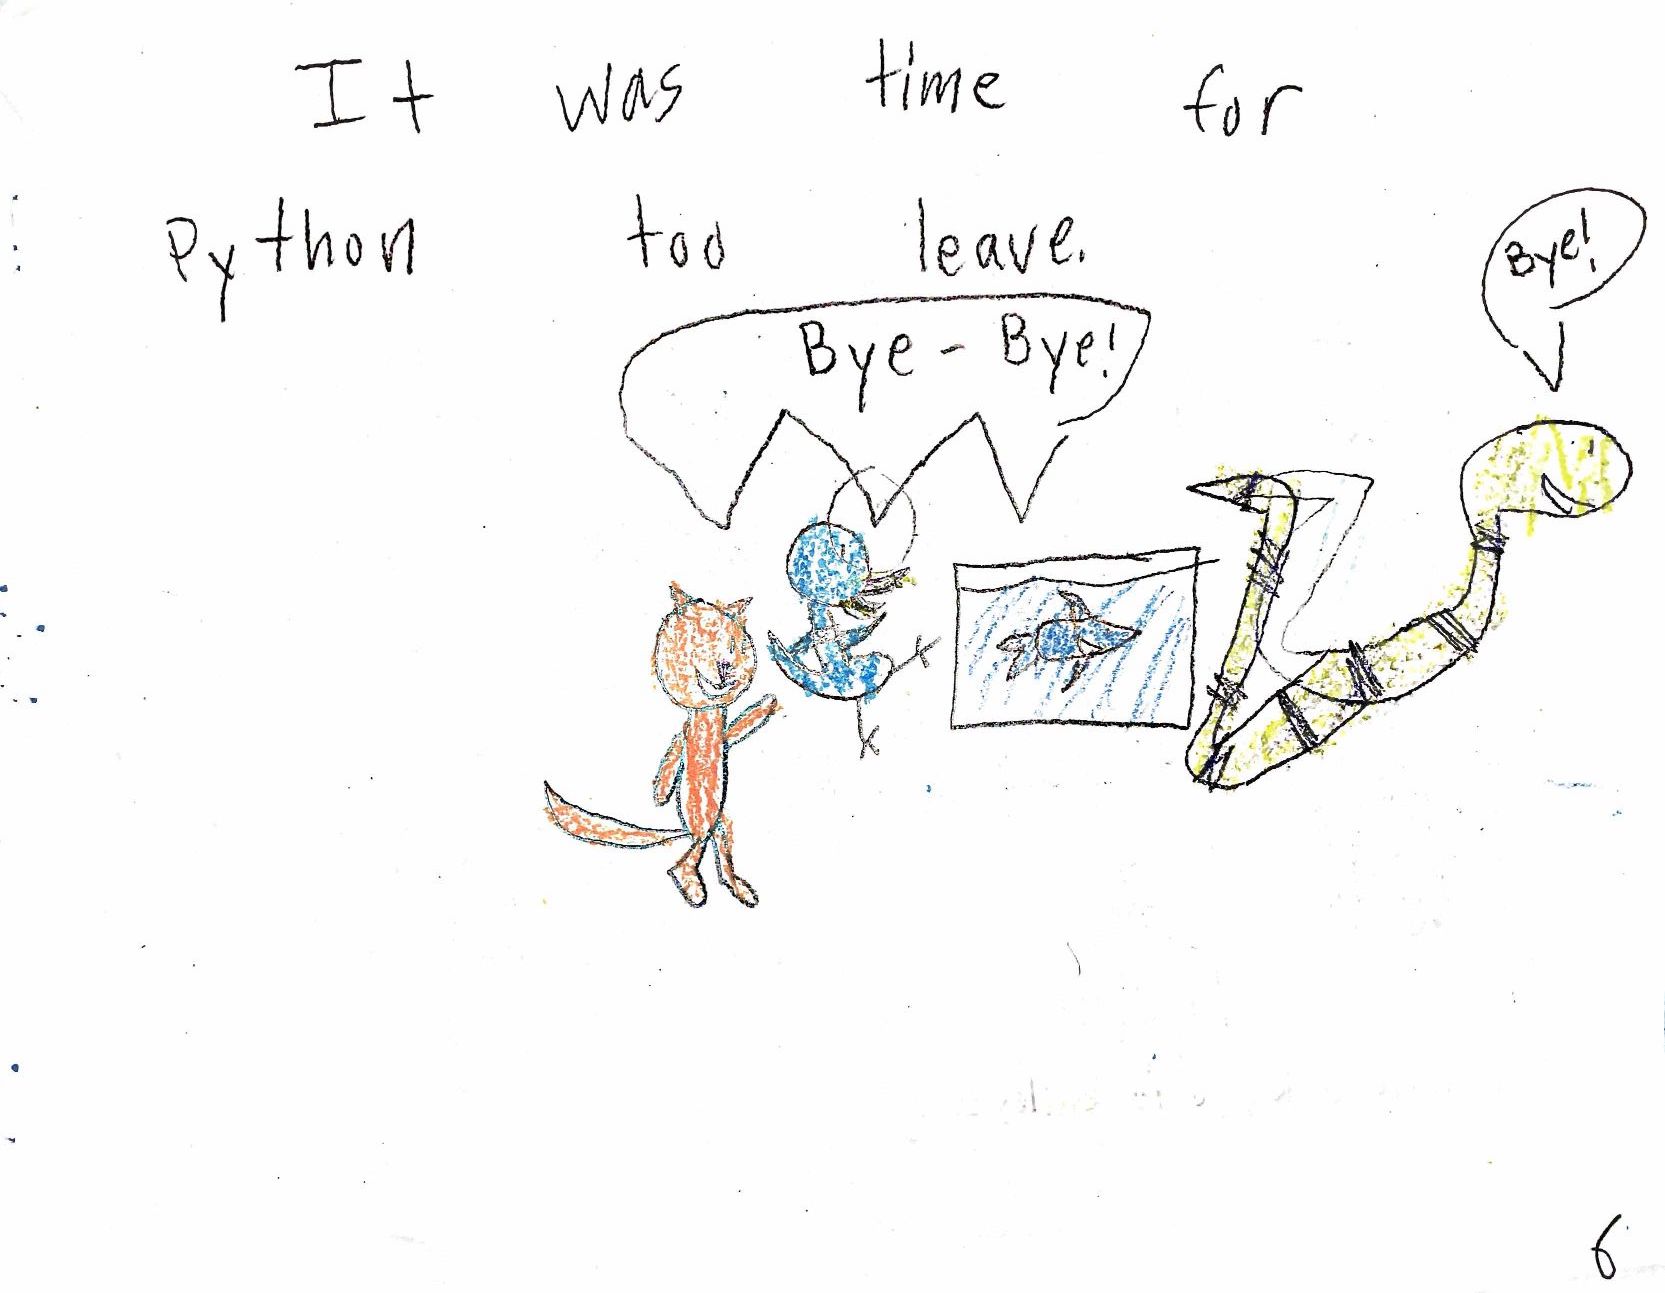 It was time for
Python too leave.
Bye!
Bye-Bye!
6